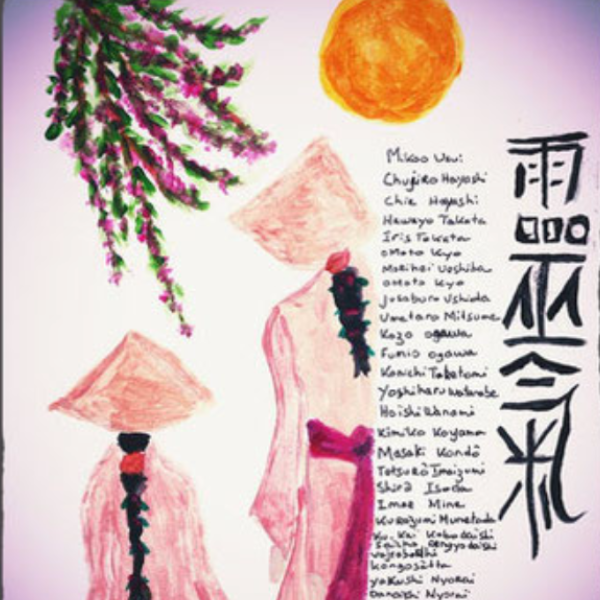 Mikao Usui
Chujiro Hayashi
Chie Hayashi
Hawayo Takata
Iris Takata
Omoto Kyo
Morihei Ueshiba
omoto Kyo
Jusaburo Ushida
Umetaro Mitsume
Kozo ogawa
Fumio ogawa
Kanichi Taketomi
Yoshiharu Watanabe
Hoishi Wanami
Kimiko Koyama
Masaki Kondô
Tetsuro Imaizumi
Shirô Isoda
Imae Mine
Kurazumi Munetada
Ku. Kai Kobo daishi
Saicho Dengyo daishi
vajrabodhi
kongosatta
yakushi Nyorai
Dainichi Nyorai
靈氣